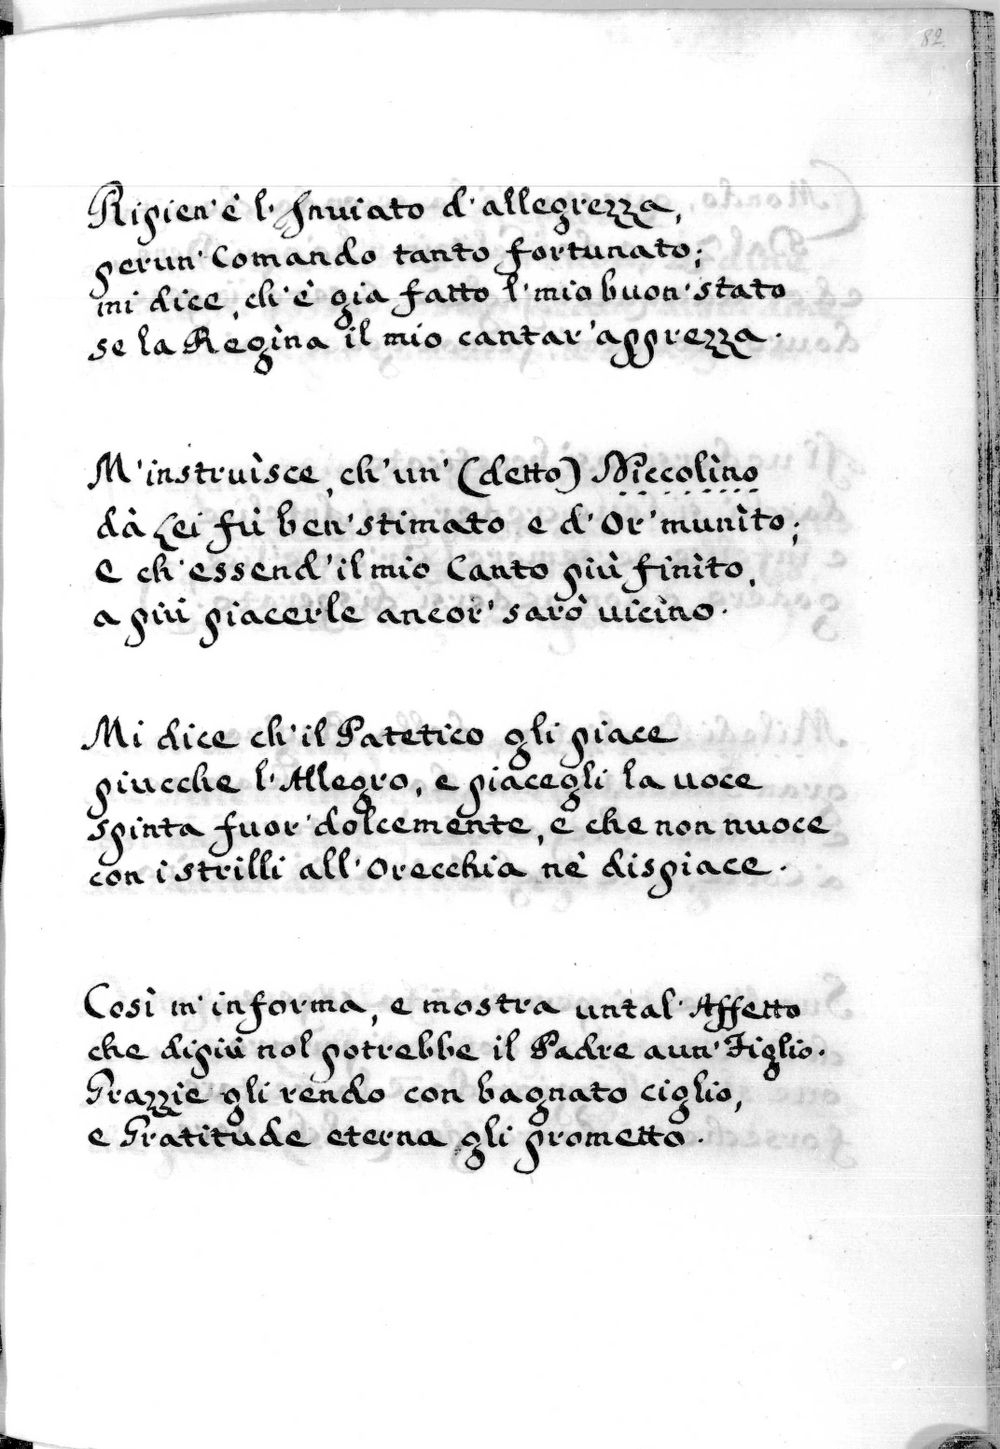 82
Ripien' è l' Inuiato d' allegrezza,
per un' Comando tanto fortunato;
mi dice, ch' è gia fatto l' mio buon' stato
se la Regìna il mio cantar' apprezza.
M' instruìsce, ch' un' (detto) Niccolìno
dà Lei fù ben' stimato e d' Or' munìto;
e ch' essend' il mio Canto più finìto,
a più piacerle ancor' sarò vicìno.
Mi dice ch' il Patetico gli piace
piucche l' Allegro, e piacegli la uoce
spinta fuor' dolcemente, e che non nuoce
con i strilli all' Orecchia nè dispiace.
Così m' informa, e mostra un tal' Affetto
che di più nol potrebbe il Padre a un' Figlio.
Grazzie gli rendo con bagnato ciglio,
e Gratitude eterna gli prometto.